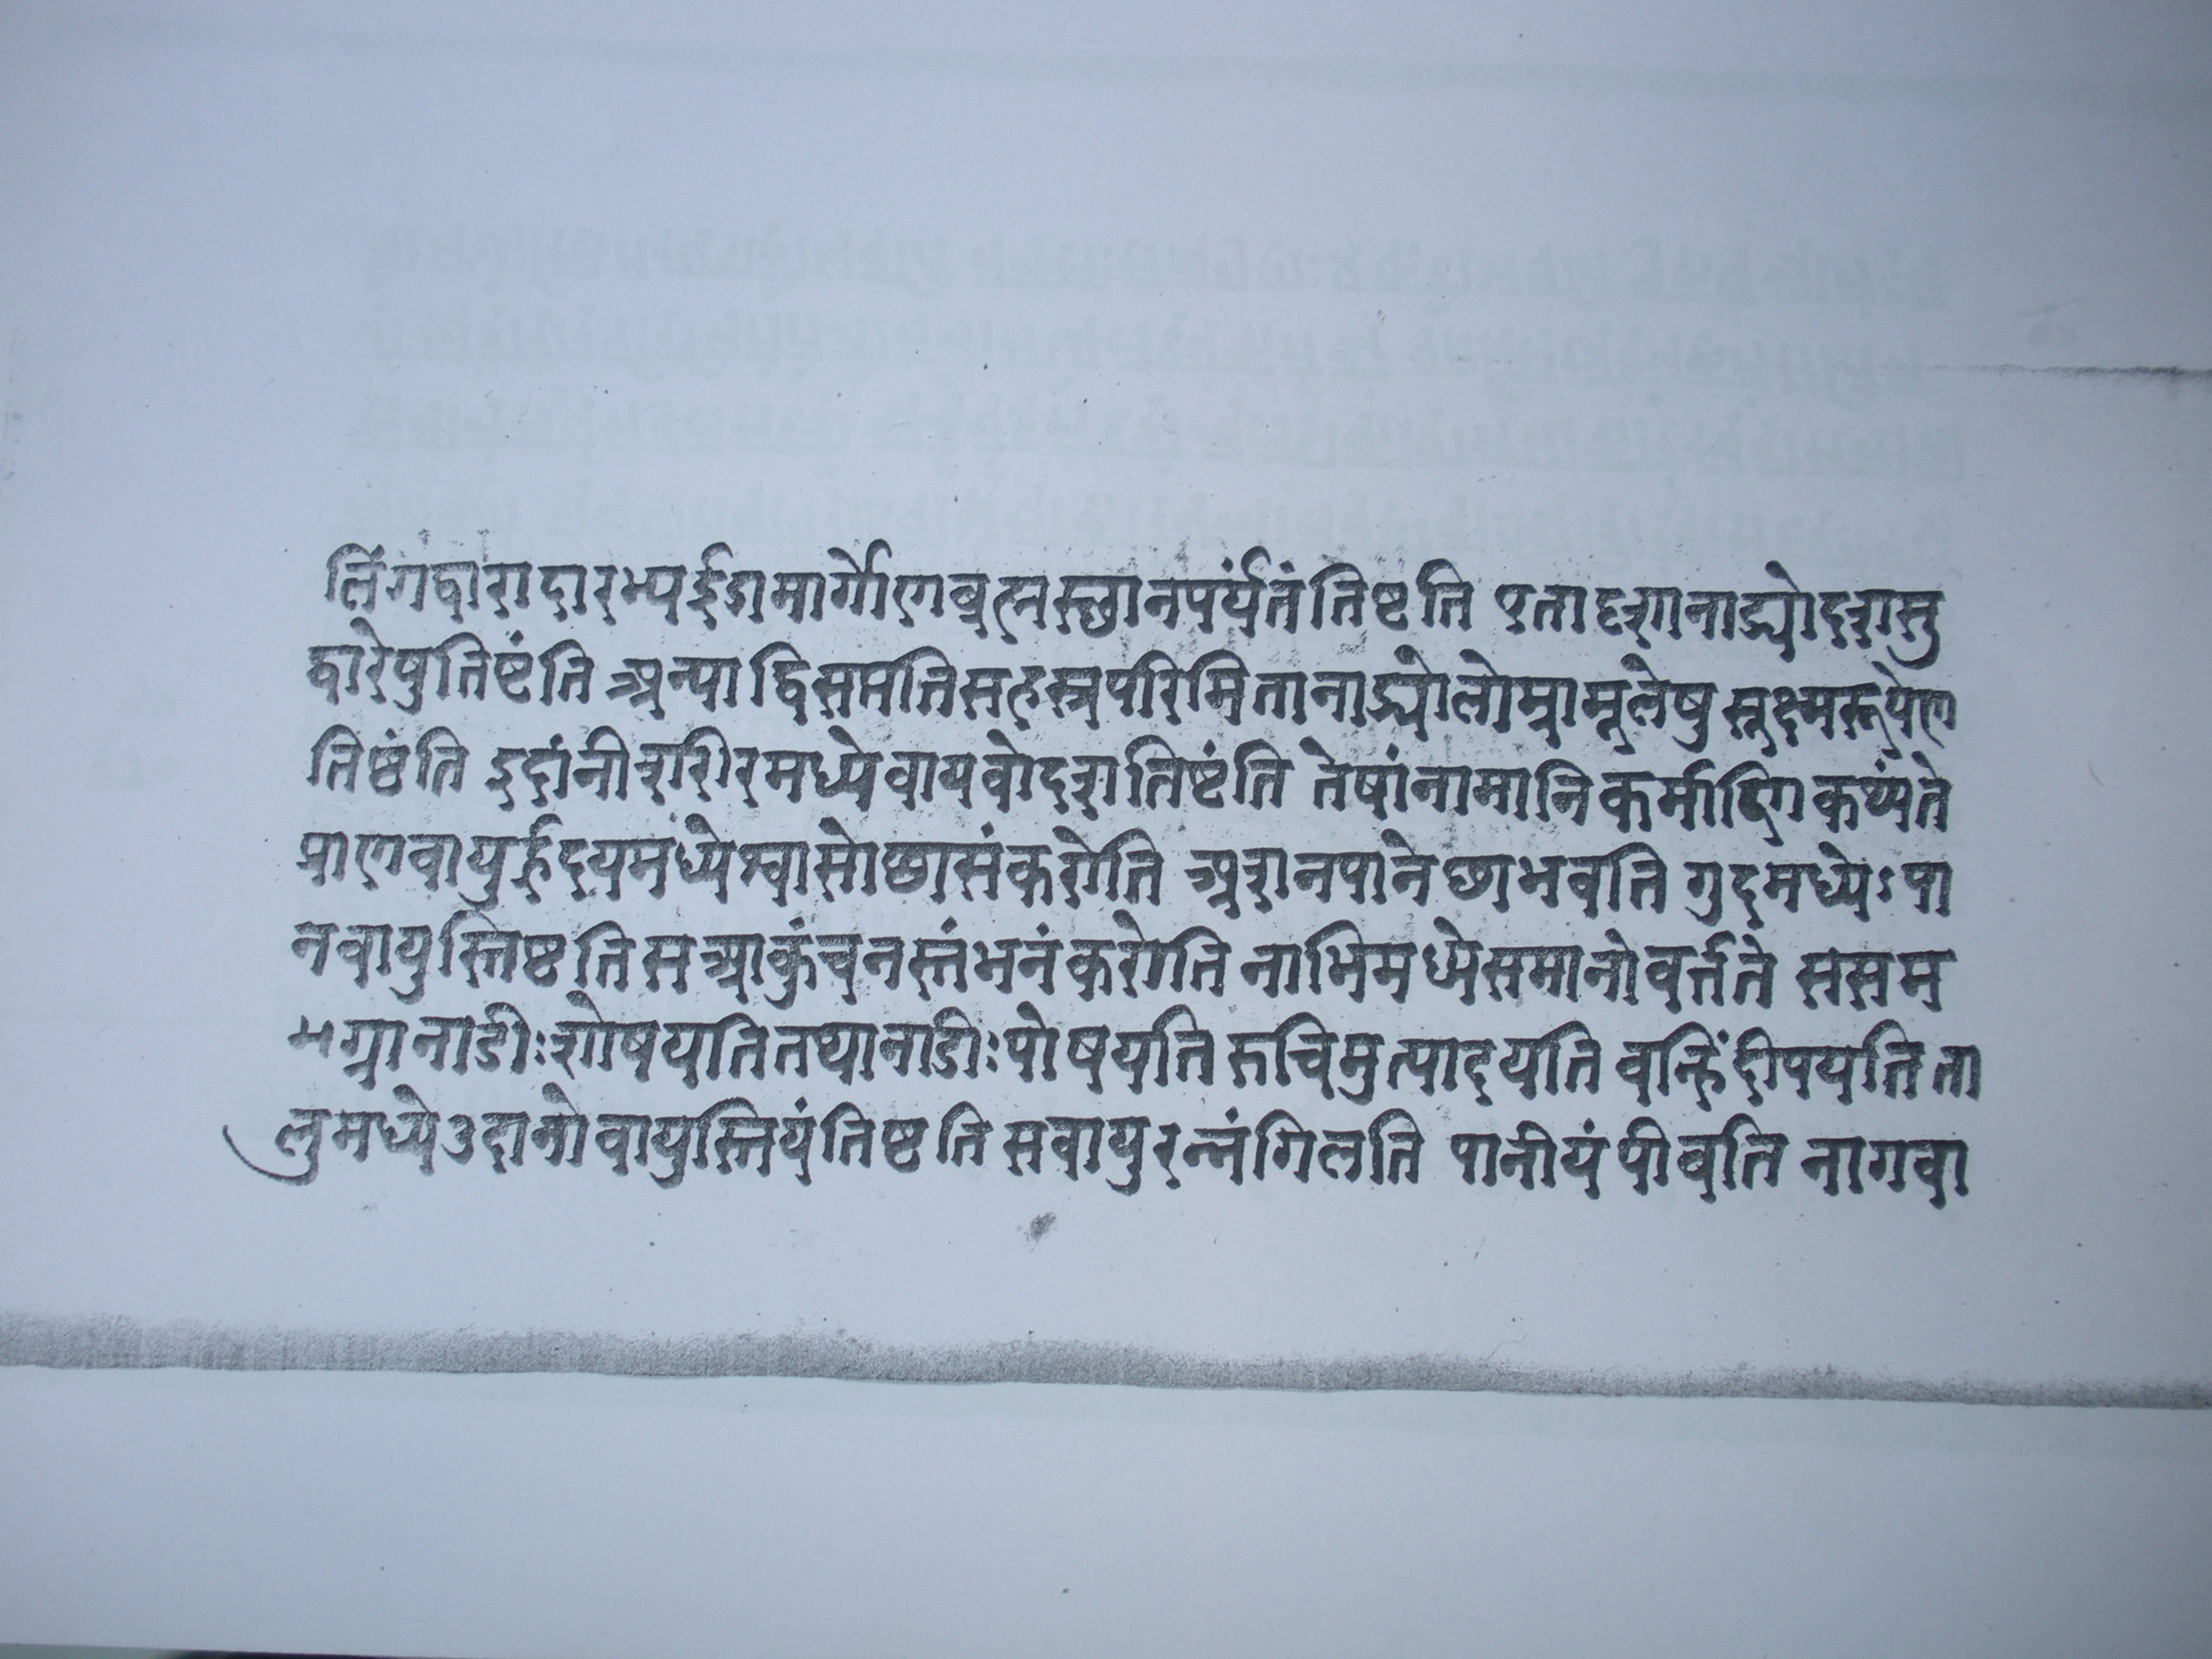 लिंगद्वारादारभ्य ईडामार्गेण ब्रह्मस्छानपर्यंतं तिष्टति एतादृशानाड्योदशसु
द्वारेषु तिष्टंति अन्या द्विसप्ततिसहस्त्रपरिमितानाड्योलोम्नामूलेषु सूक्ष्मरूपेण
तिष्ठंति इदांनी शरीरमध्ये वायवोदश तिष्टंति तेषांनामानि कर्माणि कथ्यंते
प्राणवायुर्हृदयमध्येश्वासोछासंकरोति अशनपानेछाभवति गुदमध्येऽपा
नवायुस्तिष्टति स आकुंचनस्तंभनंकरोति नाभिमध्येसमानोवर्त्तते ससम
मग्रानाडीःशोषयति तथानाडीःपोषयति रुचिमुत्पादयति वन्हिंदीपयति ता
लुमध्येउदानोवायुस्तियंतिष्टति सवायुरन्नंगिलति पानीयं पीबति नागवा